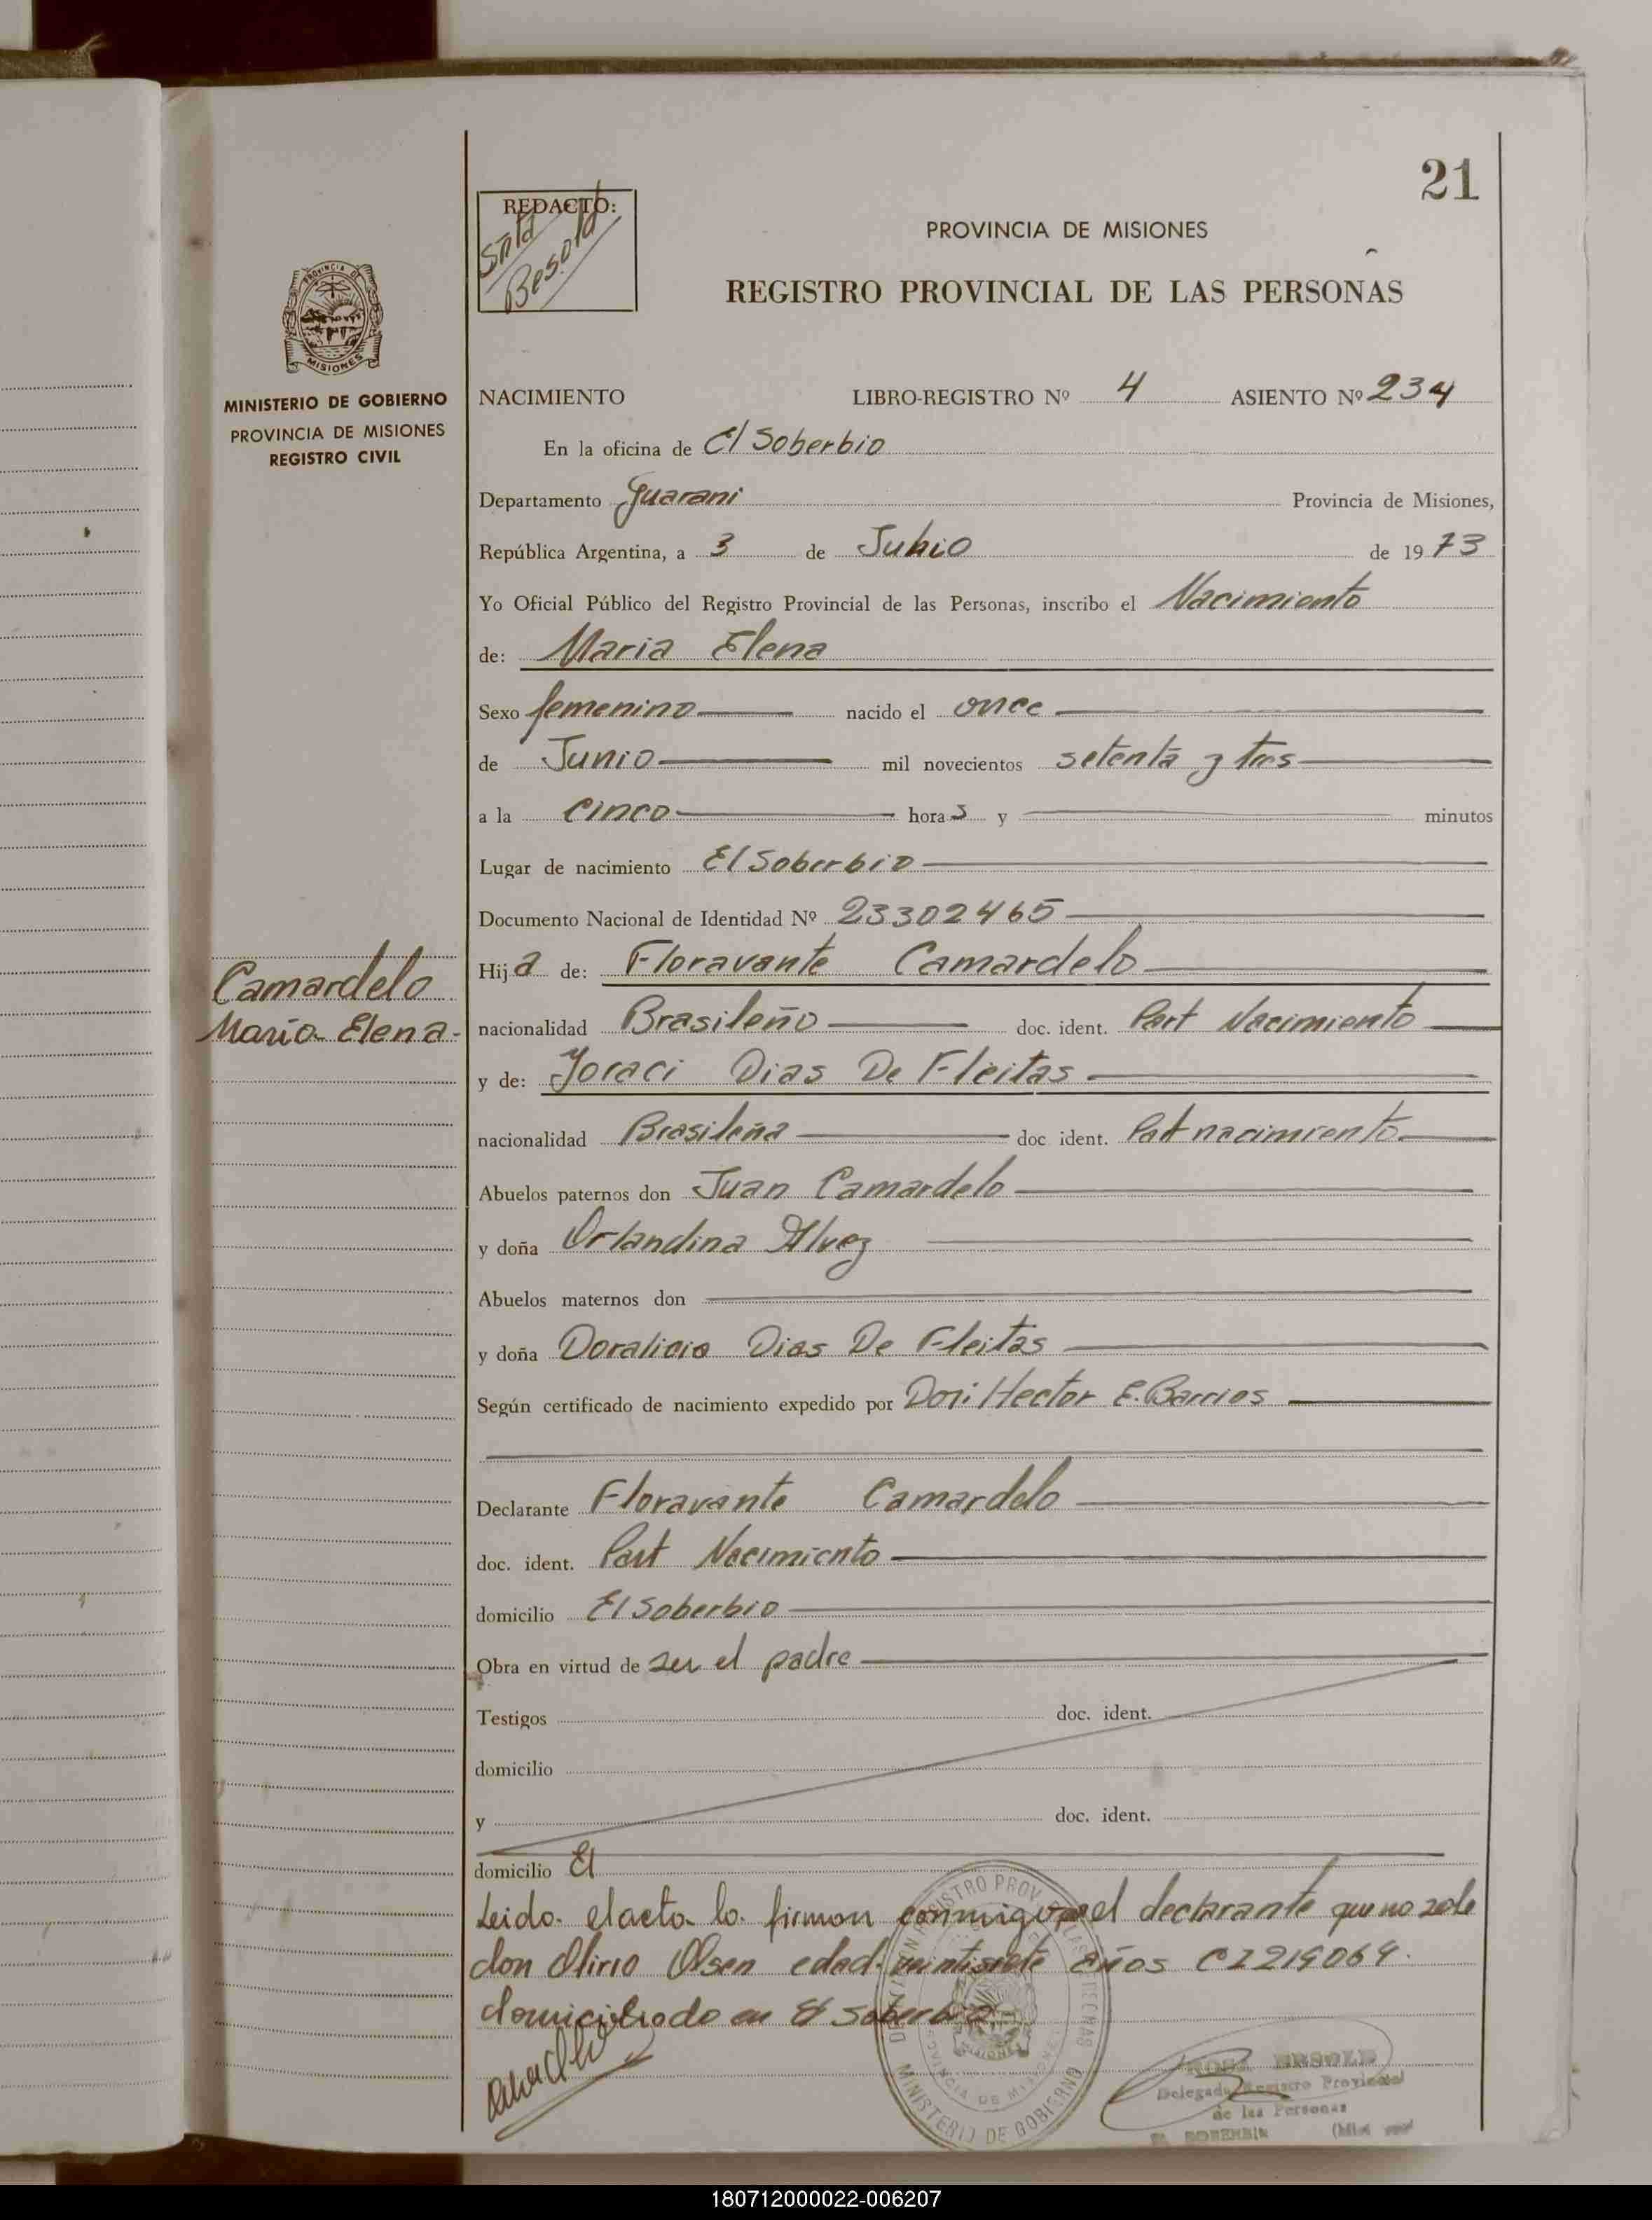 21
REDACTO:
Srta
Besold
PROVINCIA DE MISIONES
REGISTRO PROVINCIAL DE LAS PERSONAS
PROVINCIA DE
MISIONES
MINISTERIO DE GOBIERNO
PROVINCIA DE MISIONES
REGISTRO CIVIL
NACIMIENTO LIBRO-REGISTRO Nº 4 ASIENTO Nº 234
En la oficina de El Soberbio
Departamento Guarani Provincia de Misiones,
República Argentina, a 3 de Julio de 1973
Yo Oficial Público del Registro Provincial de las Personas, inscribo el Nacimiento
de: Maria Elena
Sexo femenino nacido el once
de Junio mil novecientos setenta y tres
a la cinco horas y minutos
Lugar de nacimiento El Soberbio
Documento Nacional de Identidad Nº 23302465
Camardelo
Maria Elena-
Hija de: Floravante Camardelo
nacionalidad Brasileño doc. ident. Part Nacimiento
y de: Joraci Dias De Fleitas
nacionalidad Brasileña doc ident. Part nacimiento
Abuelos paternos don Juan Camardelo
y doña Orlandina Alvez
Abuelos maternos don
y doña Doralicia Dias De Fleitas
Según certificado de nacimiento expedido por Hector E. Barrios
Declarante Floravante Camardelo
doc. ident. Part Nacimiento
domicilio El Soberbio
Obra en virtud de ser el padre
Testigos doc. ident.
domicilio
y doc. ident.
domicilio El
Leido el acto lo firman conmigo el declarante que no sabe
don Olirio Olsen edad veintisiete años CI 219064.
domiciliado en El Soberbio
MINISTERIO DE GOBIERNO
PROVINCIA DE MISIONES
ROSA BESOLD
Delegada Registro Provincial
de las Personas
EL SOBERBIO
180712000022-006207